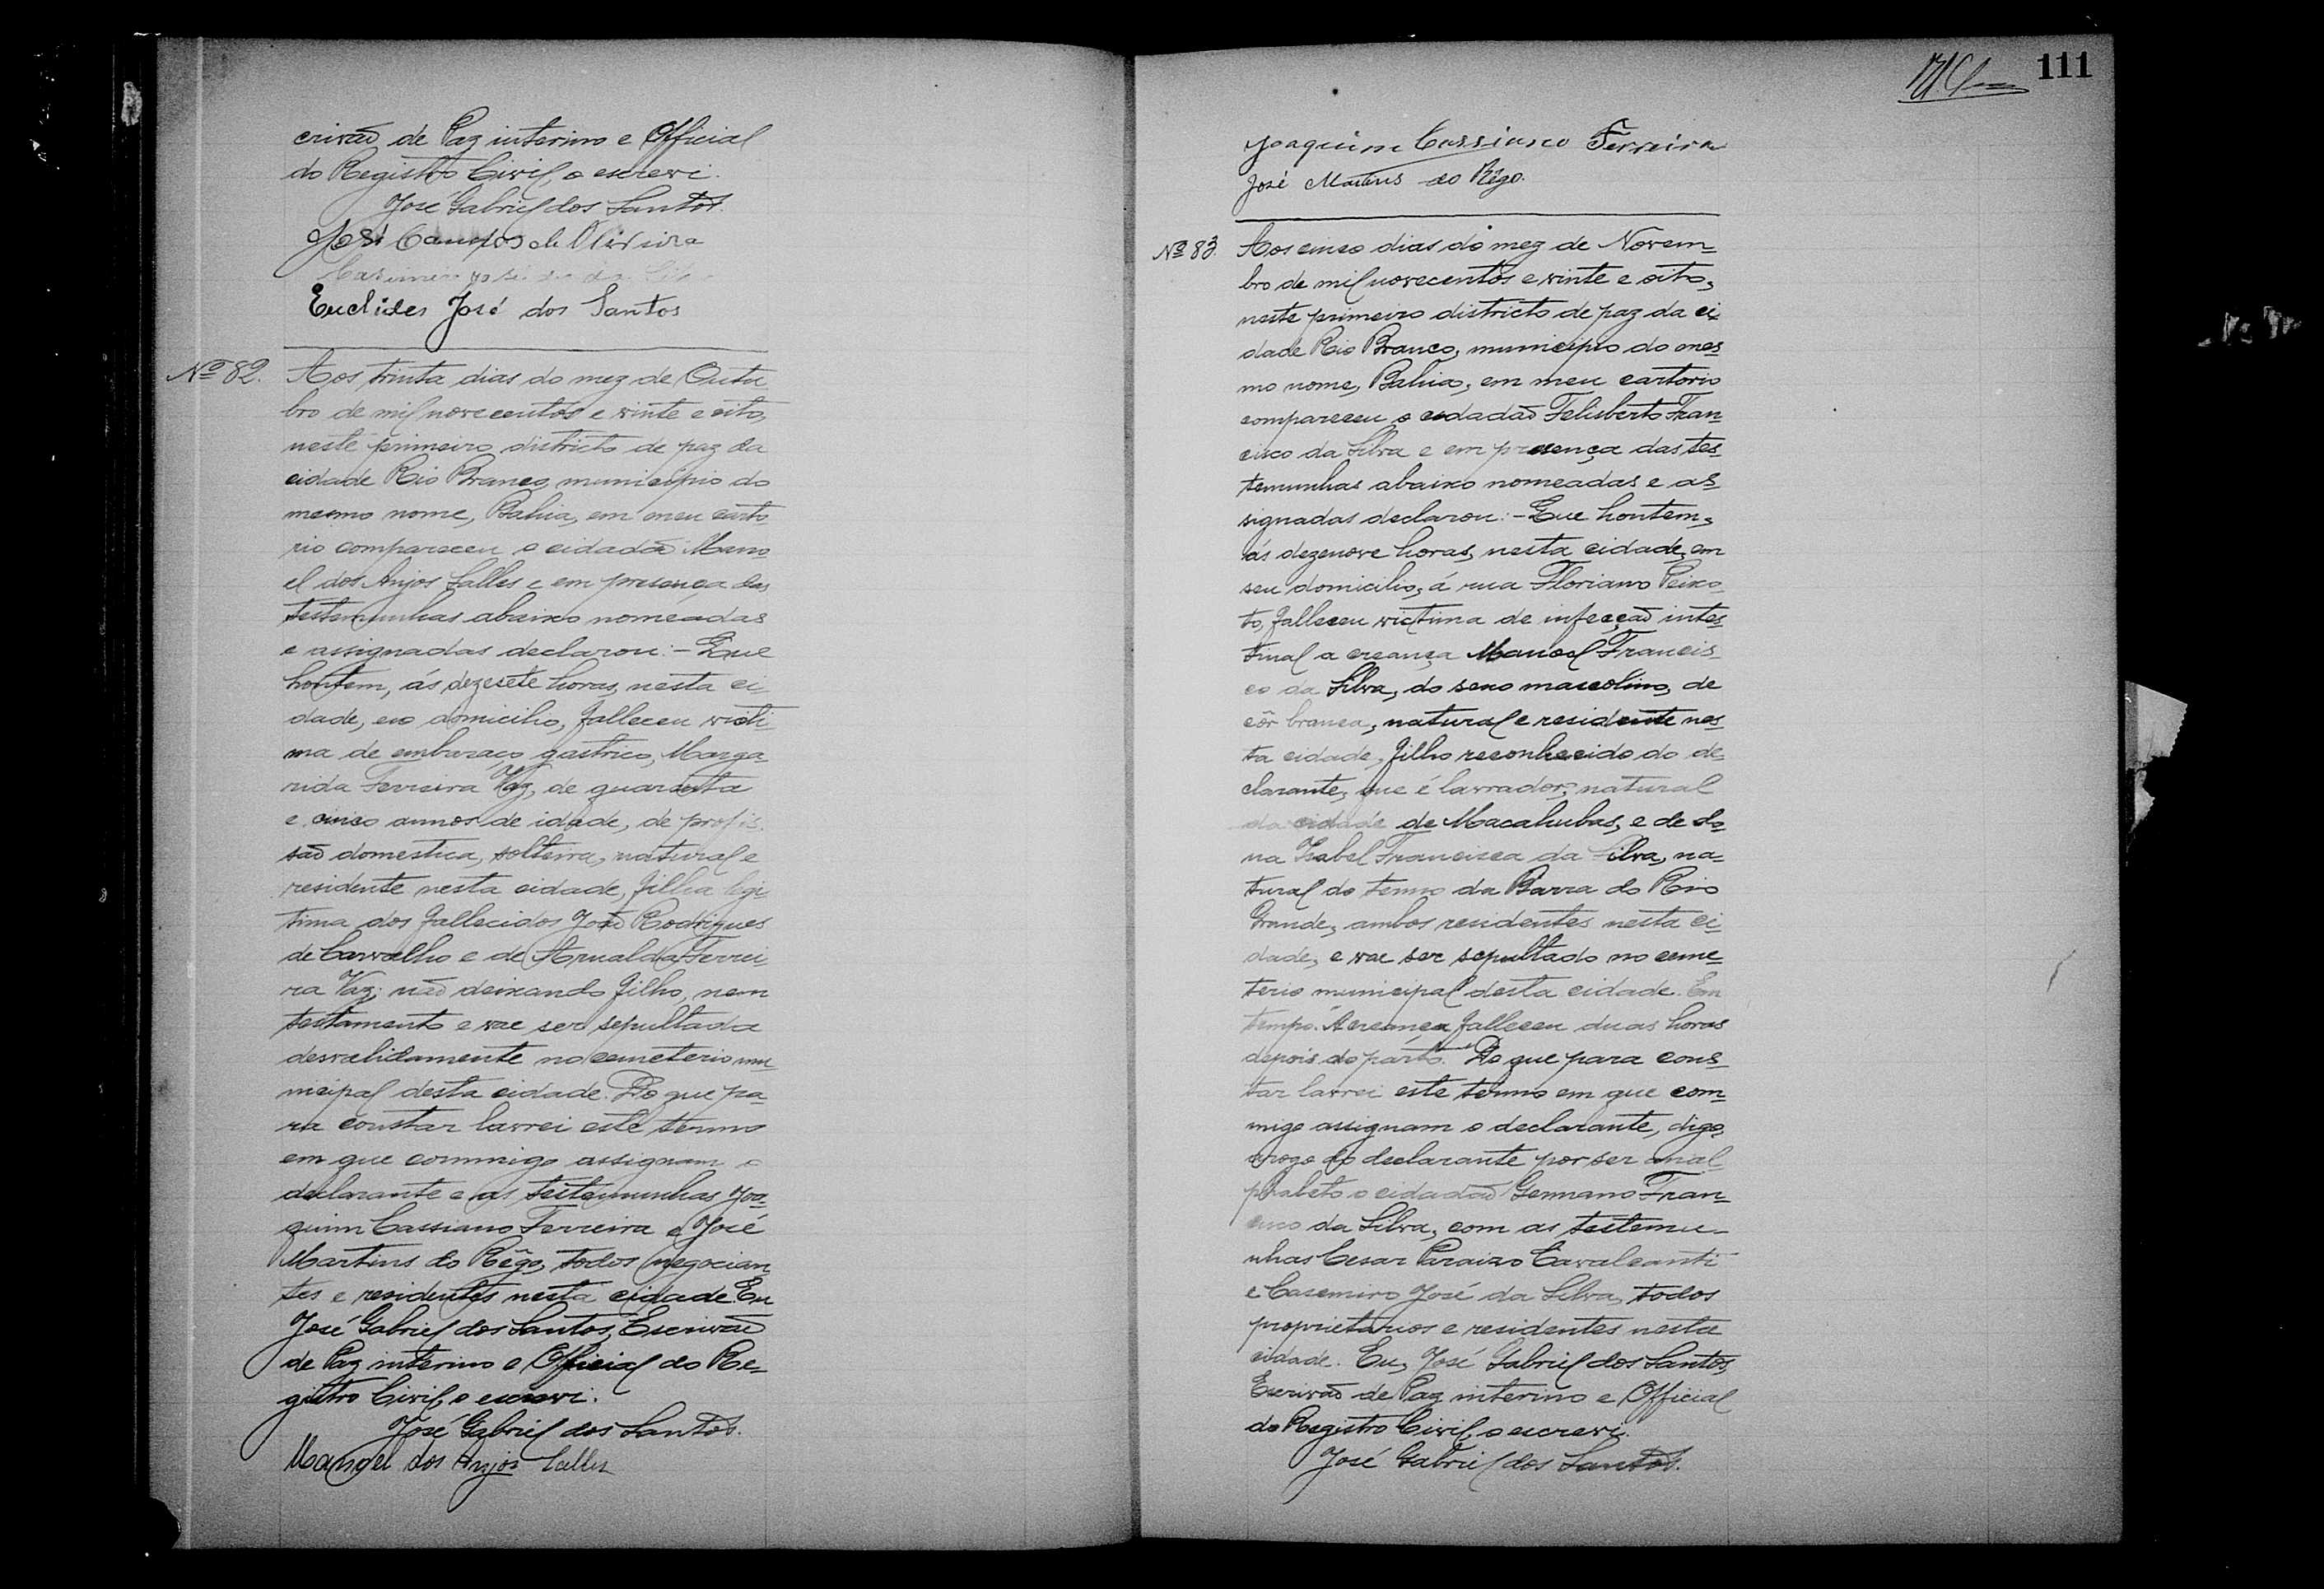 crivaõ de Paz interino e Official
do Registro Civil, o escrevi.
José Gabriel dos Santos.
José Campos de Oliveira
Casimiro José da Silva
Euclides José dos Santos
Nº 82. Aos trinta dias do mez de Outu
bro de mil novecentos e vinte e oito,
neste primeiro districto de paz da
cidade Rio Branco, municipio do
mesmo nome, Bahia, em meu carto
rio compareceu o cidadaõ Mano
el dos Anjos Salles e em presença das
testemunhas abaixo nomeadas
e assignadas declarou:- Que
hontem, ás dezesete horas, nesta ci
dade, em domicilio, falleceu victi-
ma de embaraço gastrico, Marga-
rida Ferreira Vaz, de quarenta
e cinco annos de idade, de profis
saõ domestica, solteira, natural e
residente nesta cidade, filha legi-
tima dos fallecidos Joaõ Rodrigues
de Carvalho e de Arnalda Ferrei-
ra Vaz; naõ deixando filho, nem
testamento e vae ser sepultada
desvalidamente no cemeterio mu
nicipal desta cidade. Do que pa-
ra constar lavrei este termo
em que commigo assignam o
declarante e as testemunhas Joa-
quim Cassiano Ferreira e José
Martins do Rêgo, todos negocian
tes e residentes nesta cidade. Eu
José Gabriel dos Santos, Escrivaõ
de Paz interino e Official do Re-
gistro Civil, o escrevi.
José Gabriel dos Santos.
Manoel dos Anjos Salles
111
Joaquim Cassiano Ferreira
José Martins do Rêgo.
Nº 83. Aos cinco dias do mez de Novem-
bro de mil novecentos e vinte e oito,
neste primeiro districto de paz da ci-
dade Rio Branco, municipio do mes
mo nome, Bahia, em meu cartorio
compareceu o cidadaõ Felisberto Fran-
cisco da Silva e em presença das tes-
temunhas abaixo nomeadas e as-
signadas declarou:- Que hontem,
ás dezenove horas, nesta cidade, em
seu domicilio, á rua Floriano Peixo-
to, falleceu victima de infecçaõ intes-
tinal a creança Manoel Francis-
co da Silva, do sexo mascolino, de
côr branca, natural e residente nes-
ta cidade, filho reconhecido do de-
clarante, que é lavrador, natural
da cidade de Macahubas, e de do-
na Izabel Francisca da Silva, na-
tural do termo da Barra do Rio
Grande, ambos residentes nesta ci-
dade, e vae ser sepultado no ceme-
terio municipal desta cidade. Em
tempo. A creança falleceu duas horas
depois do parto. Do que para cons-
tar lavrei este termo em que com-
migo assignam o declarante, digo,
a rogo do declarante por ser anal-
phabeto o cidadaõ Germano Fran-
cisco da Silva, com as testemu-
nhas Cesar Paraizo Cavalcanti
e Casemiro José da Silva, todos
proprietarios e residentes nesta
cidade. Eu, José Gabriel dos Santos,
Escrivaõ de Paz interino e Official
do Registro Civil, o escrevi.
José Gabriel dos Santos.